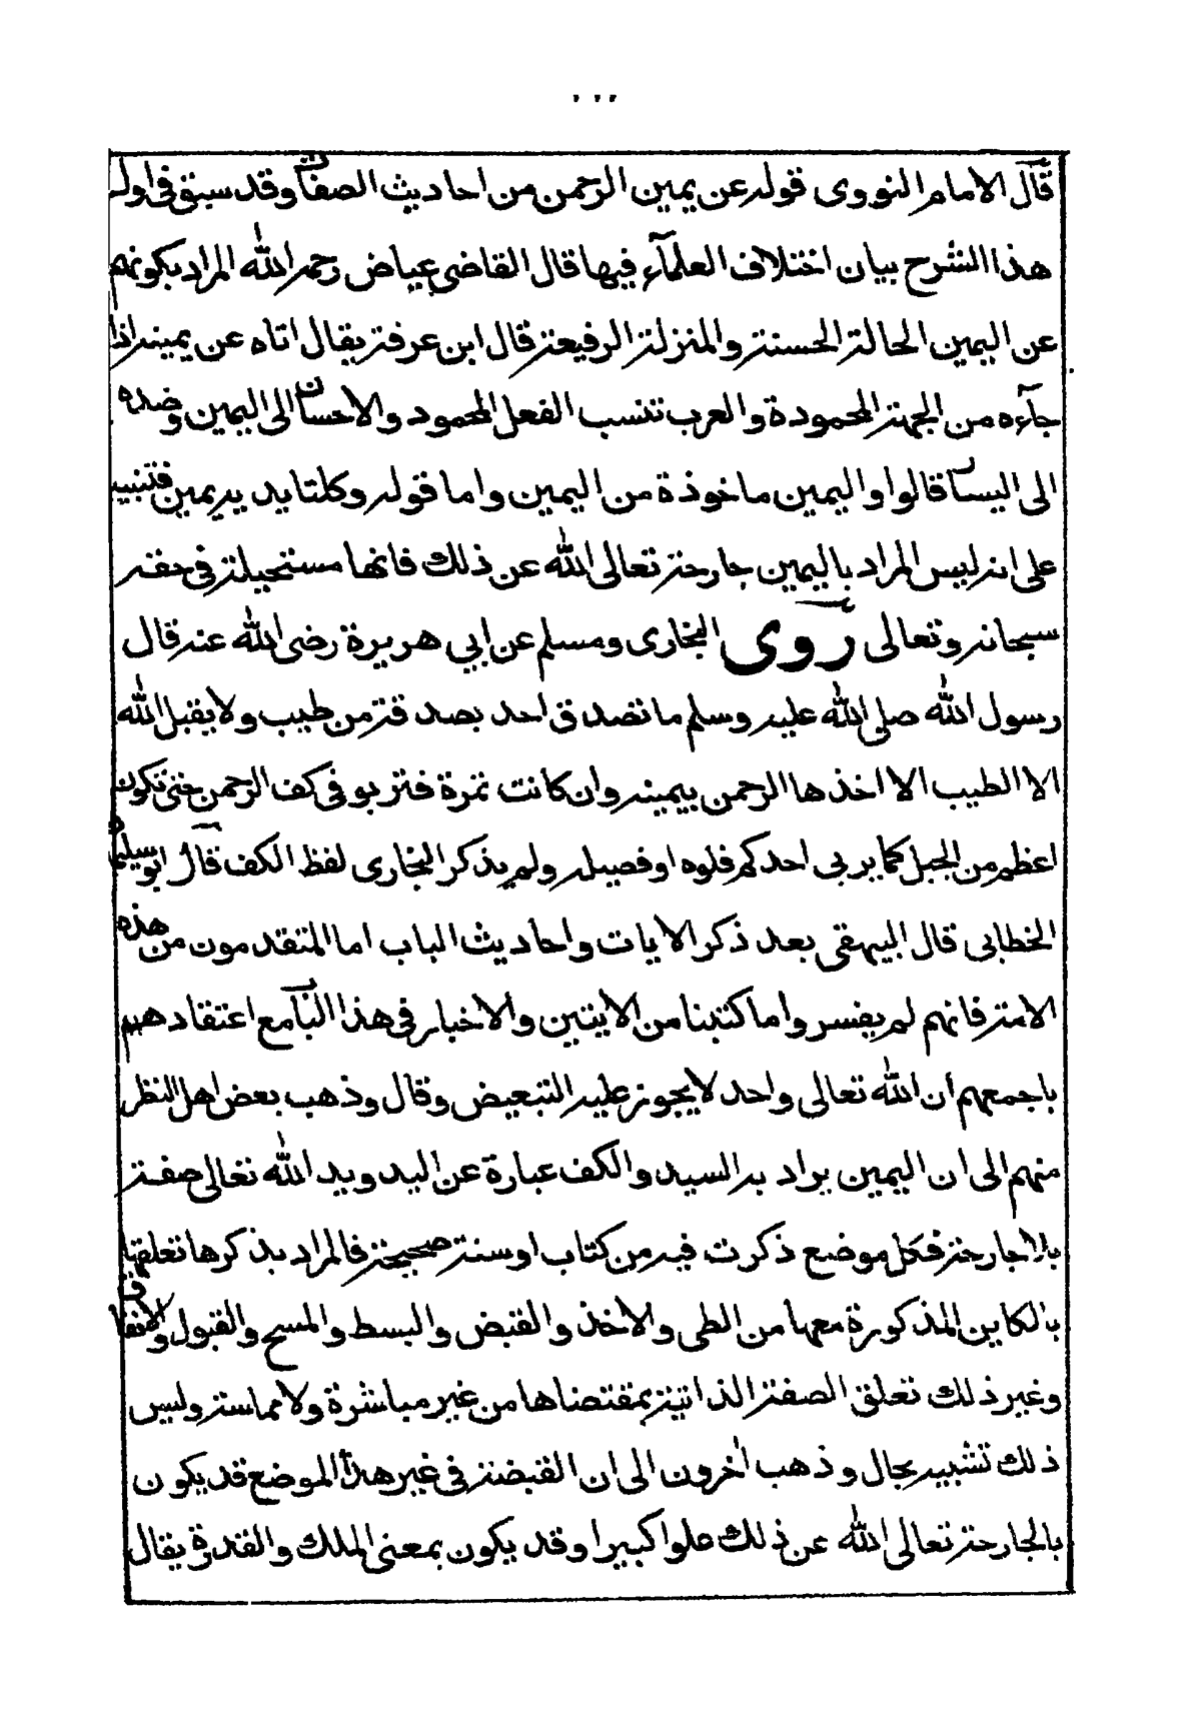 قال الامام النووى قوله عن يمين الرحمن من احاديث الصفات وقد سبق فى اول
هذا الشرح بيان اختلاف العلمآء فيها قال القاضى عياض رحمه الله المراد بكونهم
عن اليمين الحالة الحسنة والمنزلة الرفيعة قال ابن عرفة يقال اتاه عن يمينه اذا
جآءه من الجهة المحمودة والعرب تنسب الفعل المحمود والاحسان الى اليمين وضده
الى اليسار قالوا واليمين ماخوذة من اليمين واما قوله وكلتا يديه يمين فتنبيه
على انه ليس المراد باليمين جارحة تعالى الله عن ذلك فانها مستحيلة فى حقه
سبحانه وتعالى روى البخارى ومسلم عن ابي هريرة رضى الله عنه قال
رسول الله صلى الله عليه وسلم ما تصدق احد بصدقة من طيب ولا يقبل الله
الا الطيب الا اخذها الرحمن بيمينه وان كانت تمرة فتربو فى كف الرحمن حتى تكون
اعظم من الجبل كما يربى احدكم فلوه او فصيله ولم يذكر البخارى لفظ الكف قال ابو سليمان
الخطابى قال البيهقى بعد ذكر الايات واحاديث الباب اما المتقدمون من هذه
الامة فانهم لم يفسروا ما كتبنا من الايتين والاخبار فى هذا الباب مع اعتقادهم
باجمعهم ان الله تعالى واحد لا يجوز عليه التبعيض وقال وذهب بعض اهل النظر
منهم الى ان اليمين يراد به اليد والكف عبارة عن اليد ويد الله تعالى صفة
بلا جارحة فكل موضع ذكرت فيه من كتاب او سنة صحيحة فالمراد بذكرها تعلقها
بالكاين المذكورة معها من الطى والاخذ والقبض والبسط والمسح والقبول والانفاق
وغير ذلك تعلق الصفة الذاتية بمقتضاها من غير مباشرة ولا مماسة وليس
ذلك تشبيه بحال وذهب اخرون الى ان القبضة فى غير هذا الموضع قد يكون
بالجارحة تعالى الله عن ذلك علوا كبيرا وقد يكون بمعنى الملك والقدرة يقال